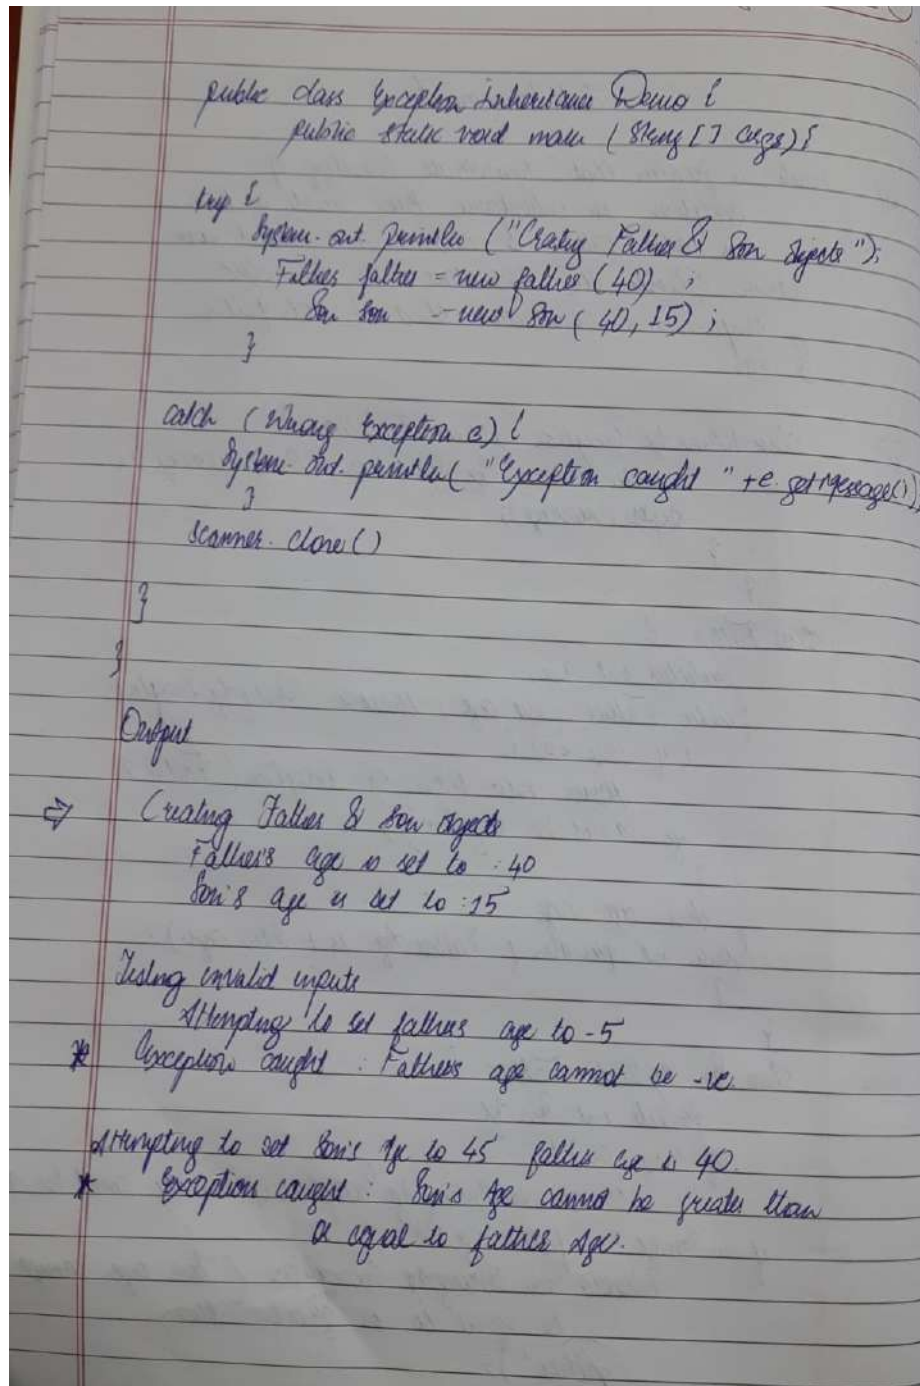 public class Exception Inheritance Demo {
public static void main (String [] args) {
try {
System.out.println ("Creating Father & Son objects");
Father father = new father (40) ;
Son son = new Son (40, 15) ;
}
catch (Wrong Exception e) {
System.out.println( "Exception caught " +e.getMessage())
}
scanner.close()
}
}
Output
⇒ Creating Father & Son objects
Father's age is set to : 40
Son's age is set to : 15
Testing invalid inputs
Attempting to set fathers age to -5
* Exception caught : Father's age cannot be -ve.
Attempting to set Son's Age to 45 father age is 40.
* Exception caught : Son's Age cannot be greater than
or equal to father Age.